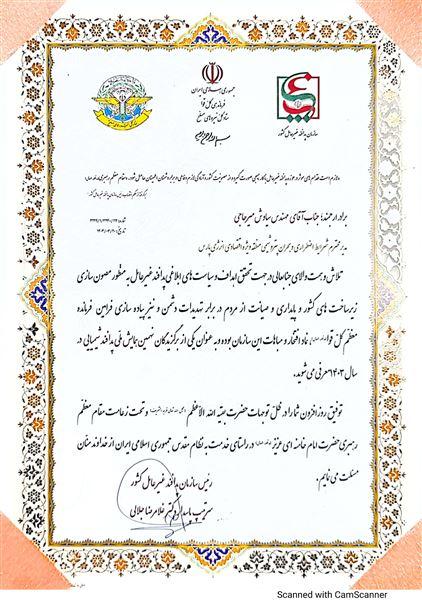 جمهوری اسلامی ایران
فرماندهی کل قوا
ستاد کل نیروهای مسلح
بسم الله الرحمن الرحیم
سازمان پدافند غیرعامل کشور
برادر ارجمند؛ جناب آقای مهندس سیاوش میرحاجی
مدیر محترم شرایط اضطراری و بحران پتروشیمی منطقه ویژه اقتصادی انرژی پارس
تلاش و همت والای جنابعالی در جهت تحقق اهداف و سیاست های ابلاغی پدافند غیرعامل به منظور مصون سازی
زیرساخت های کشور و پایداری و صیانت از مردم در برابر تهدیدات دشمن و نیز پیاده سازی فرامین فرمانده
معظم کل قوا نماد افتخار و مباهات این سازمان بوده و به عنوان یکی از برگزیدگان نهمین همایش ملی پدافند شیمیایی در
سال ۱۴۰۳ معرفی می شوید.
توفیق روزافزون شما را در ظل توجهات حضرت بقیه الله الاعظم و تحت زعامت مقام معظم
رهبری حضرت امام خامنه ای عزیز در راستای خدمت به نظام مقدس جمهوری اسلامی ایران از خداوند منان
مسئلت می نمایم.
رئیس سازمان پدافند غیرعامل کشور
سرتیپ پاسدار دکتر غلامرضا جلالی
Scanned with CamScanner